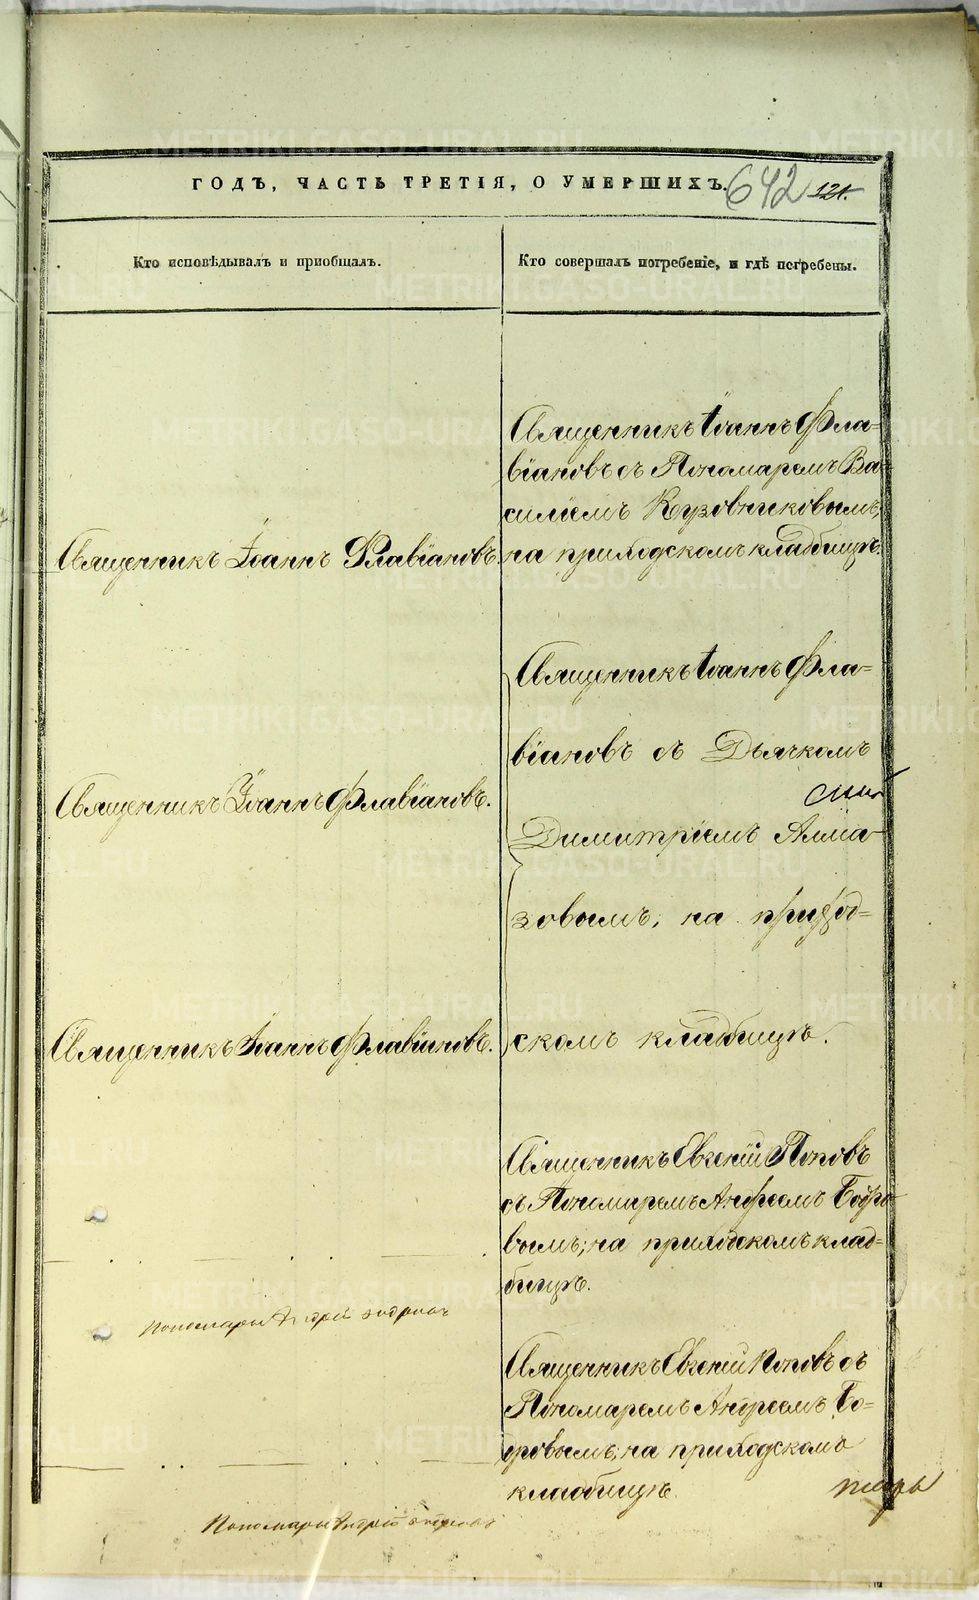 ГОДЪ, ЧАСТЬ ТРЕТІЯ, О УМЕРШИХЪ.
642 121.
Кто исповѣдывалъ и приобщалъ.
Кто совершалъ погребеніе, и гдѣ погребены.
Священникъ Іоаннъ Флавіановъ.
Священникъ Іоаннъ Фла-
віановъ съ Пономаремъ Ва-
силіемъ Кузовниковымъ,
на приходскомъ кладбищѣ.
Священникъ Іоаннъ Флавіановъ.
Священникъ Іоаннъ Флавіановъ.
Священникъ Іоаннъ Фла=
віановъ съ Дьячкомъ
Димитріемъ Алма-
зовымъ, на приход=
скомъ кладбищѣ.
Священникъ Евгеній Поповъ
съ Пономаремъ Андреемъ
вымъ; на приходскомъ клад=
бищѣ.
Пономарь Андрей
Священникъ Евгеній Поповъ съ
Пономаремъ Андреемъ
на приходскомъ
кладбищѣ.
Пономарь Андрей
METRIKI.GASO-URAL.RU